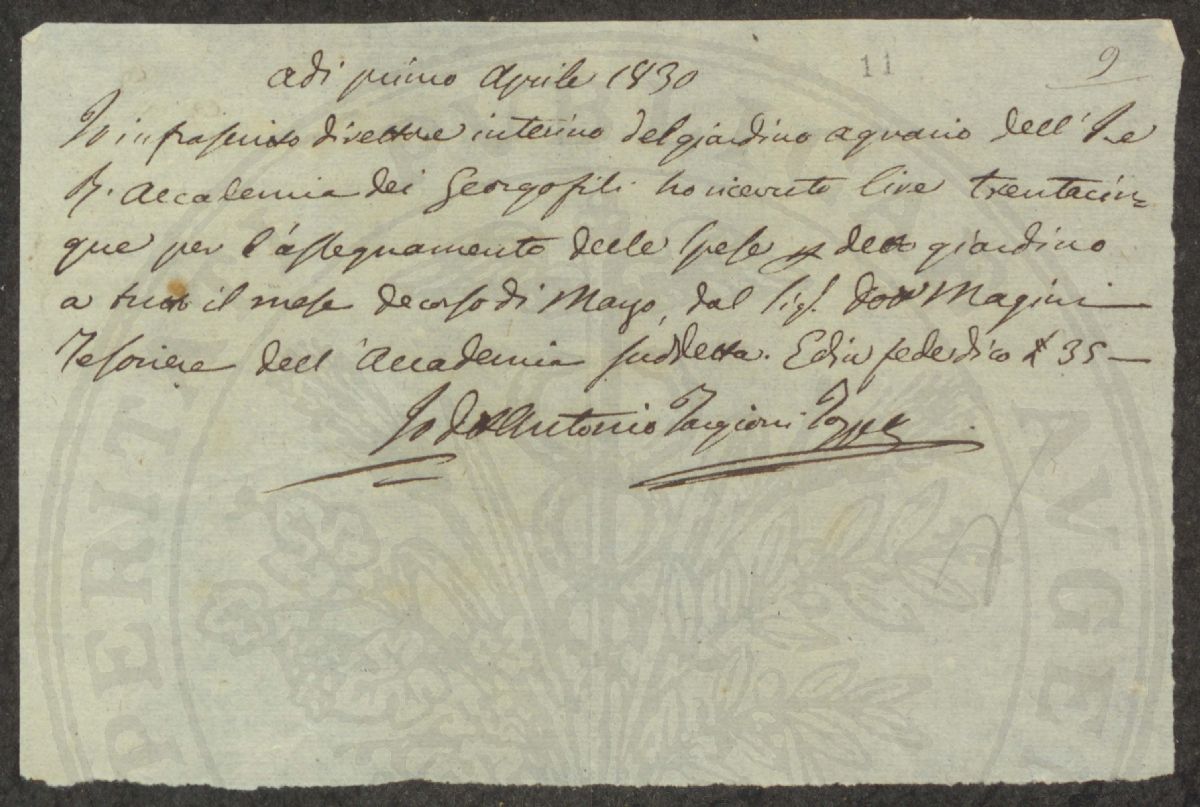 adi primo Aprile 1830
11
9
Io infrascritto direttore interino del giardino agrario dell'I. e
R. Accademia dei Georgofili ho ricevuto lire trentacin=
que per l'assegnamento delle spese di detto giardino
a tutto il mese decorso di Marzo, dal Sig. dott. Magini
Tesoriere dell'Accademia suddetta. Ed in fede dico £ 35 —
Io dott Antonio Targioni Tozzetti
PERITA
AVGE